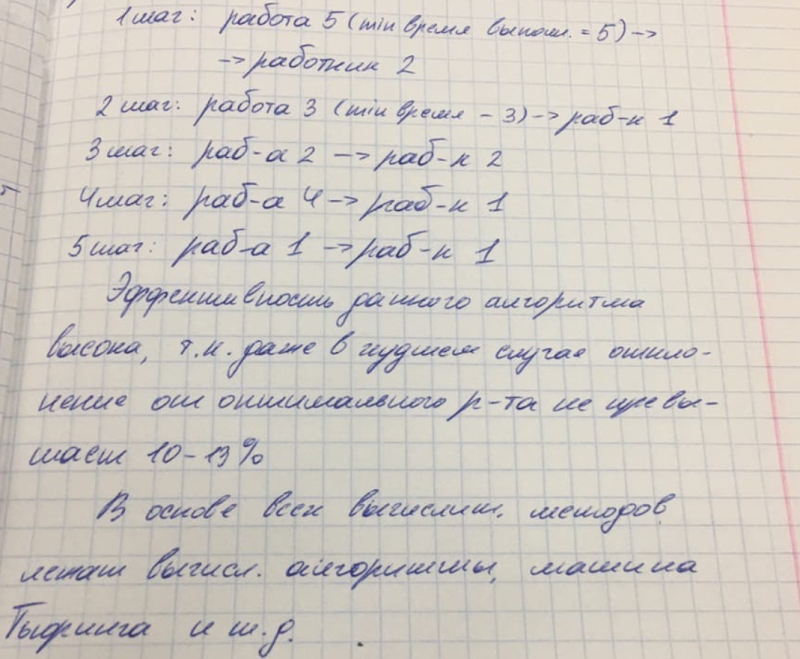 1 шаг: работа 5 (min время выполн. = 5) →
→ работник 2
2 шаг: работа 3 (min время - 3) → раб-к 1
3 шаг: раб-а 2 → раб-к 2
4 шаг: раб-а 4 → раб-к 1
5 шаг: раб-а 1 → раб-к 1
Эффективность данного алгоритма
высока, т.к. даже в худшем случае откло-
нение от оптимального р-та не превы-
шает 10-13%
В основе всех вычислит. методов
лежат вычисл. алгоритмы, машина
Тьюринга и т.д.